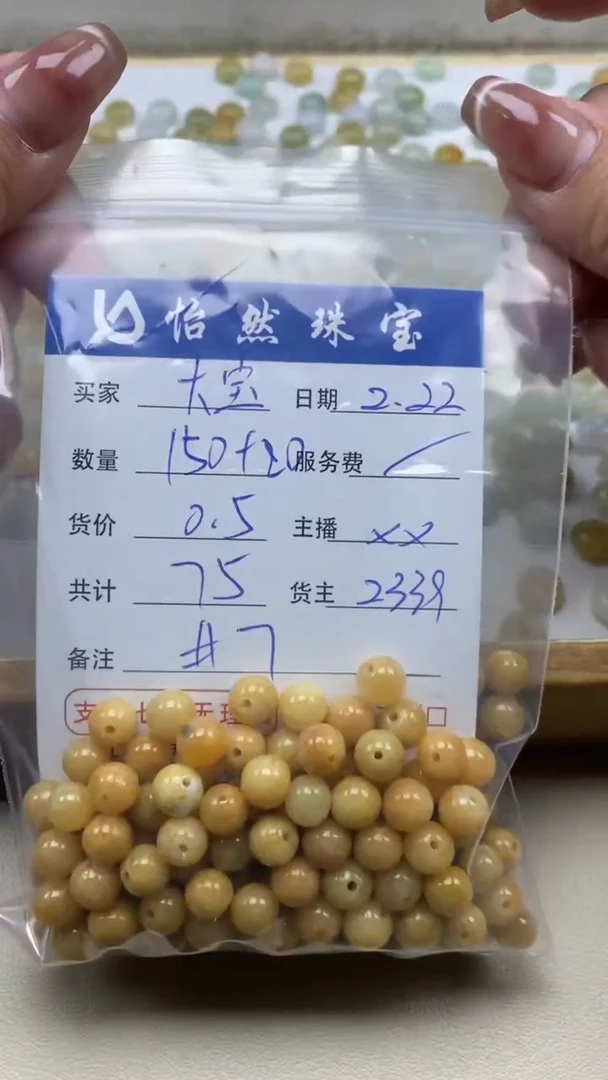 怡然珠宝
买家 大宝 日期 2.22
数量 150+20 服务费 /
货价 0.5 主播 xx
共计 75 货主 2339
备注 #7
支 七 无理